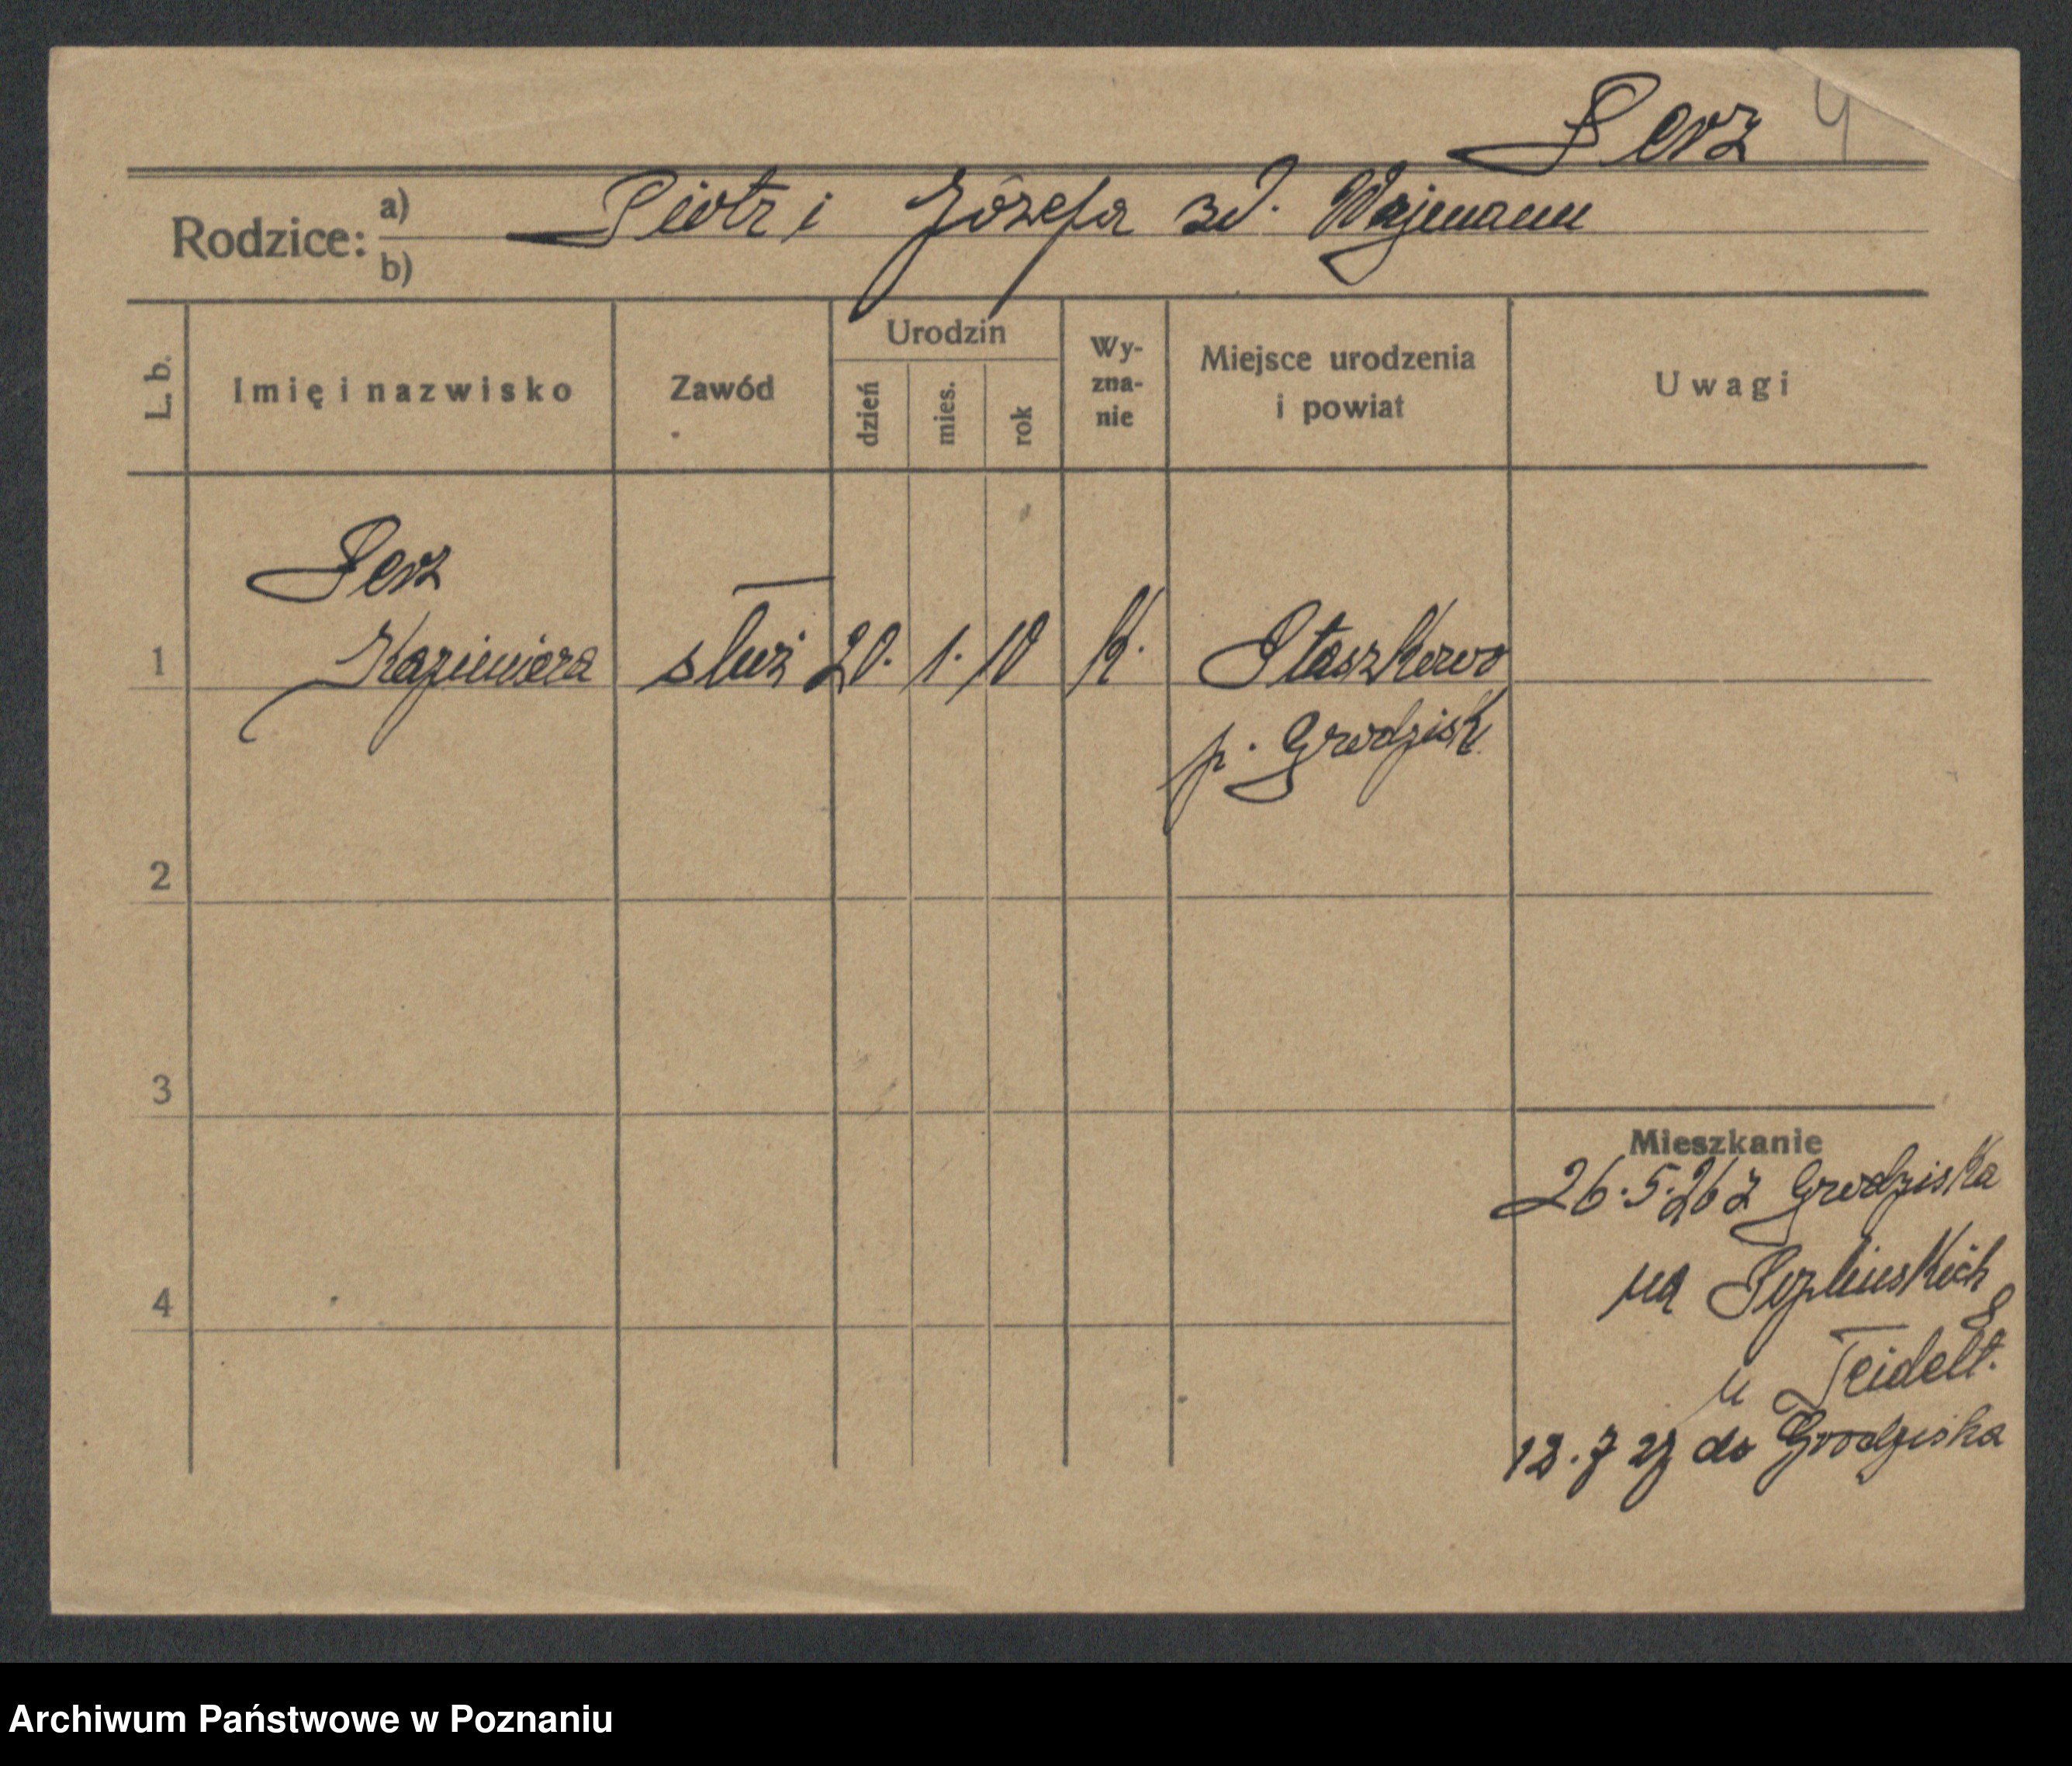 Perz 4
Rodzice: a) Piotr i Józefa zd. Wajmann
b)
L. b. Imię i nazwisko Zawód Urodzin dzień mies. rok Wyznanie Miejsce urodzenia i powiat Uwagi
Perz
1 Kazimiera służ 20. 1. 10 k. Staszkowo
p. Grodzisk
2
3
Mieszkanie
26.5.26 z Grodziska
na
4
u
13.7 27 do Grodziska
Archiwum Państwowe w Poznaniu